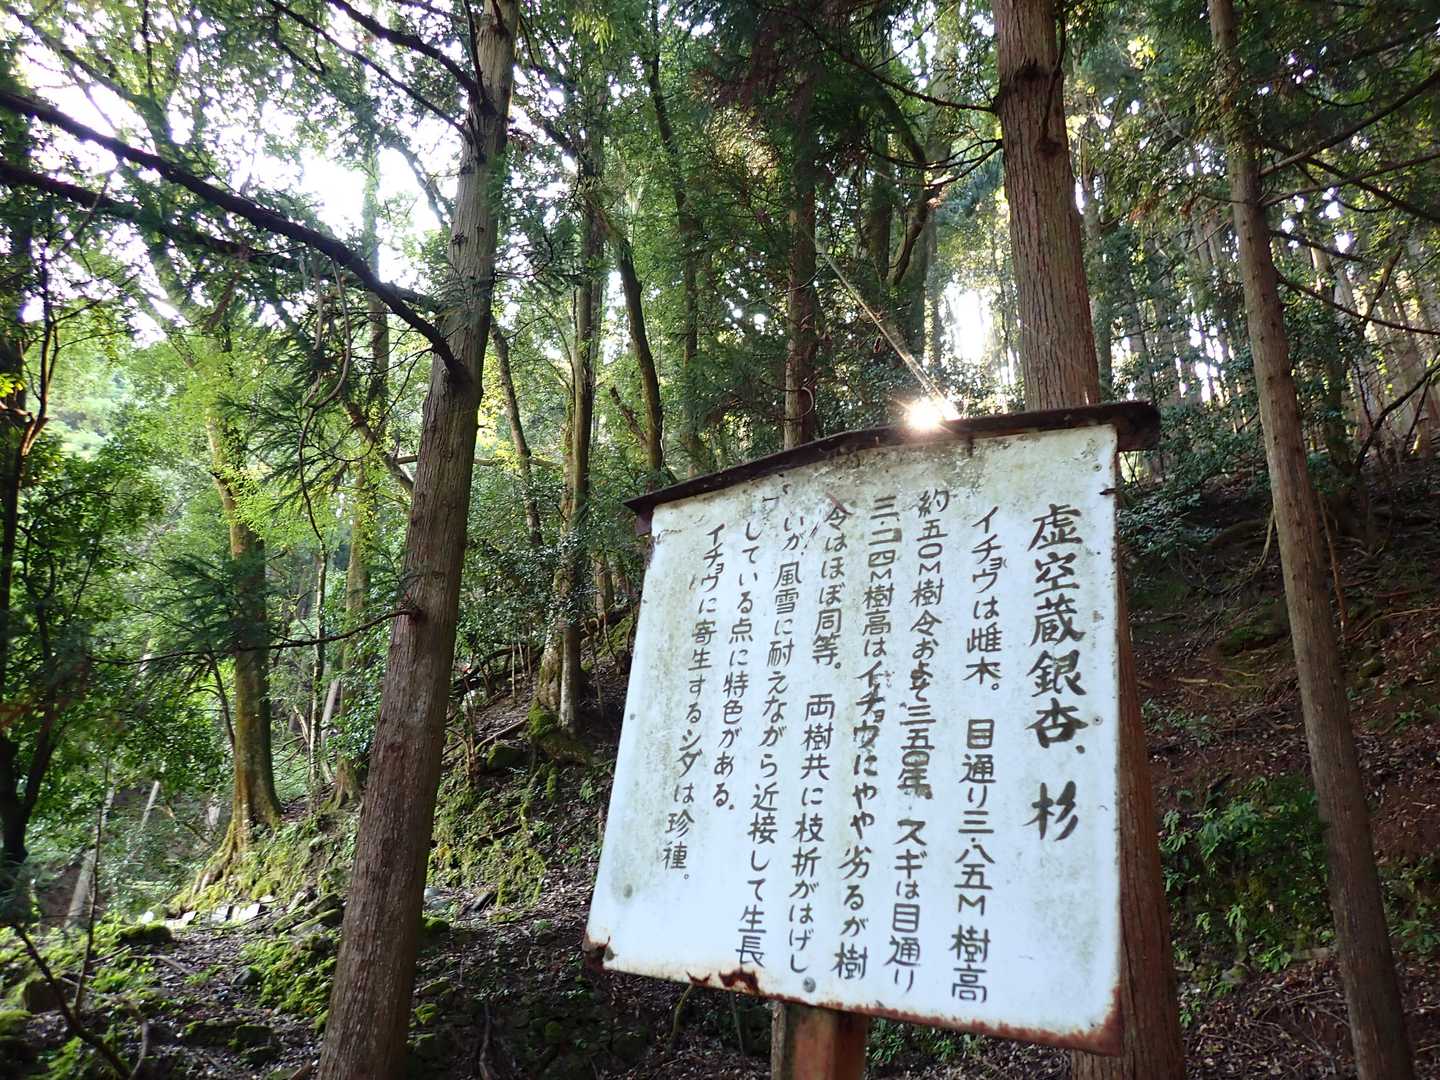 虚空蔵銀杏、杉
イチョウは雌木。目通り三・八五M樹高
約五〇M樹令およそ三五〇年。スギは目通り
三・二四M樹高はイチョウにやや劣るが樹
令はほぼ同等。両樹共に枝折がはげし
いが風雪に耐えながら近接して生長
している点に特色がある。
イチョウに寄生するシダは珍種。